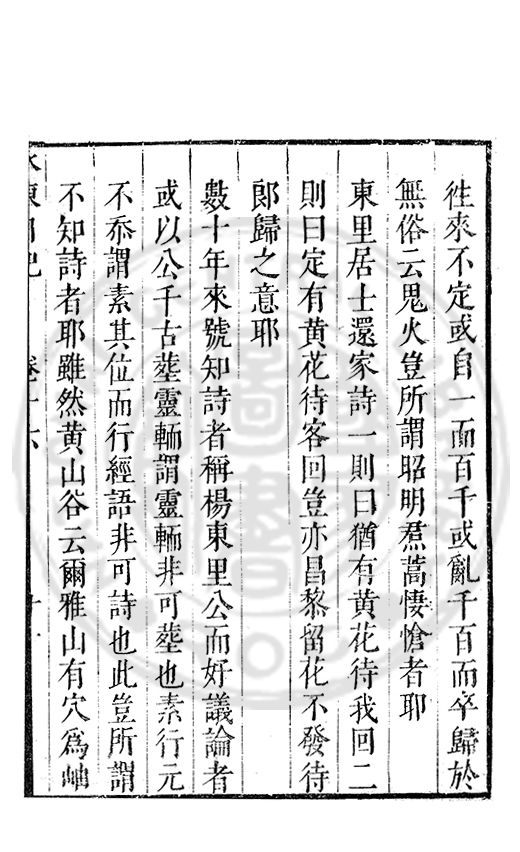 徃來不定或自一而百千或亂千百而卒歸於
無俗云鬼火豈所謂昭明焄蒿悽愴者耶
東里居士還家詩一則曰猶有黄花待我回二
則曰定有黄花待客回豈亦昌黎留花不發待
郎歸之意耶
數十年來號知詩者稱楊東里公而好議論者
或以公千古塟靈輀謂靈輀非可塟也素行元
不忝謂素其位而行經語非可詩也此豈所謂
不知詩者耶雖然黄山谷云爾雅山有穴爲岫
水東日記 卷十六